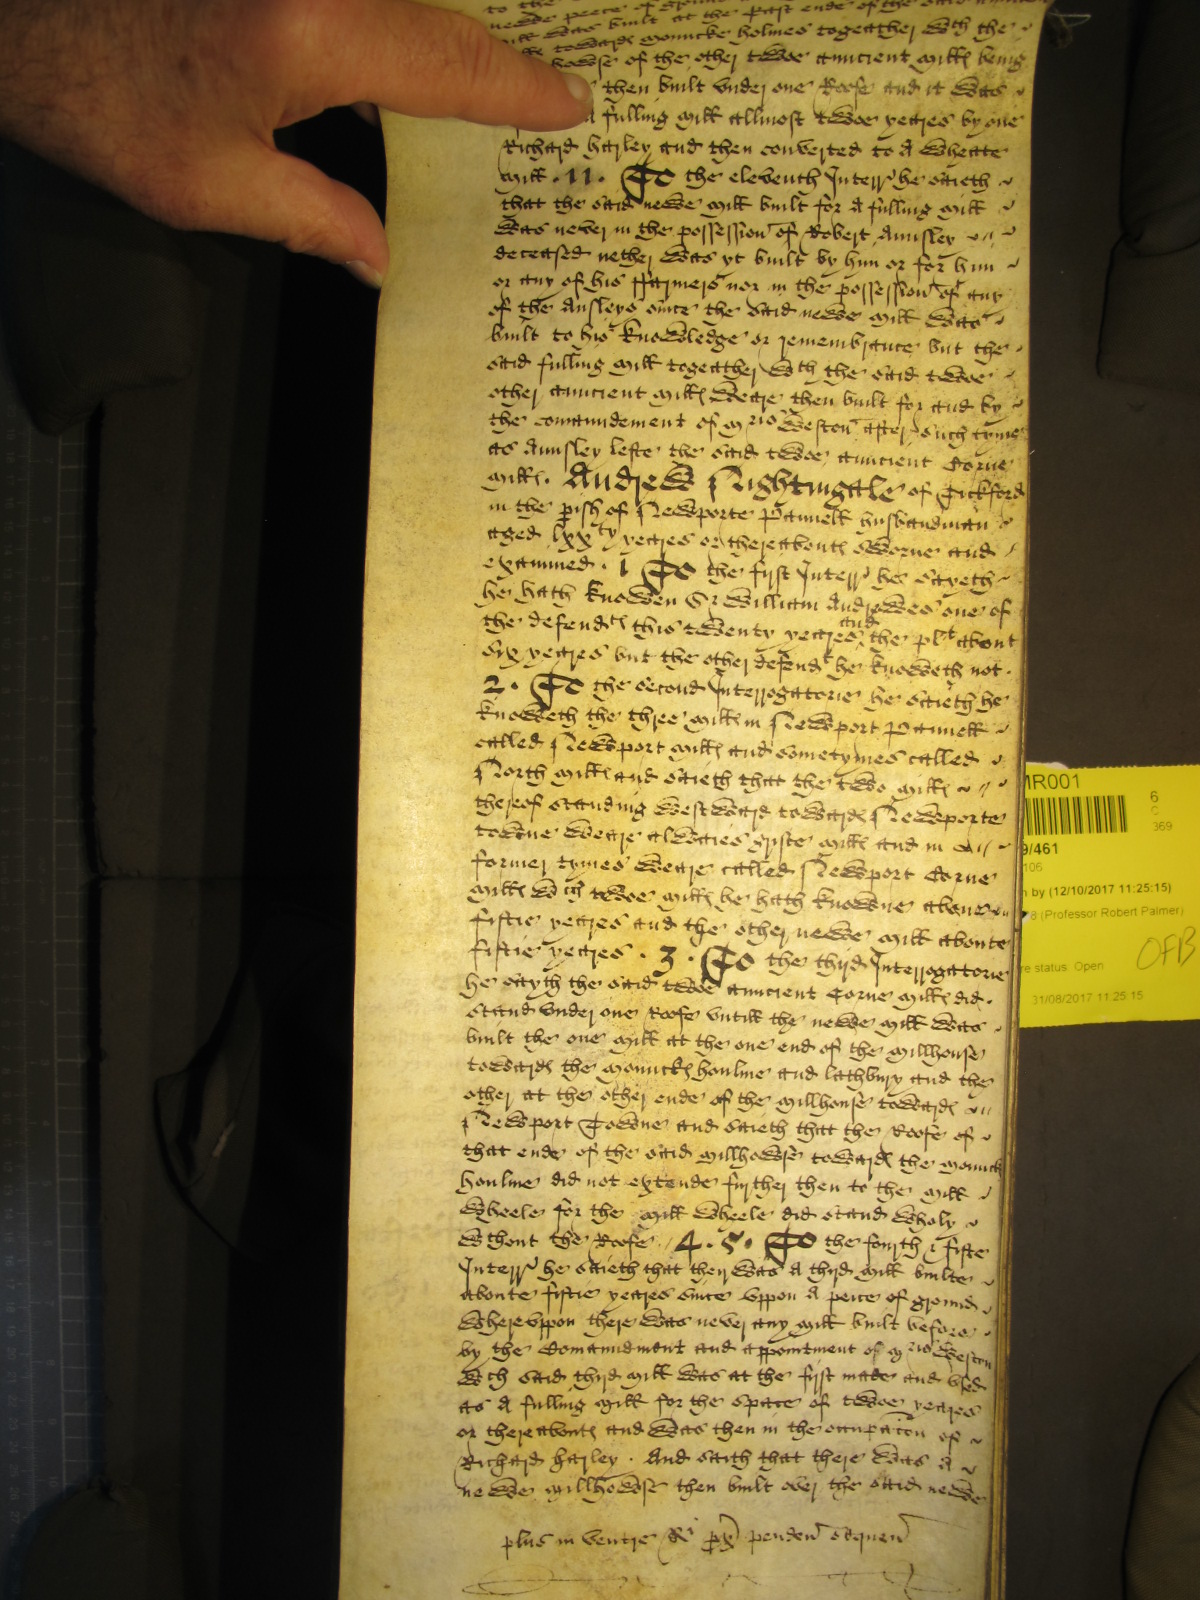 to the
newe peece of ground at the East ende of the said auncient
mill was built at the East ende of the said auncient
mill towardes Monncke holmes togeather wth the
howse of the other twoe auncient milles being
then built vnder one Roofe and it was
A fulling mill allmost twoe yeares by one
Richard Harley and then converted to A Wheate
mill . 11 . To the eleventh Interr he saieth
that the said newe mill built for A fulling mill
was never in the possession of Robert Annsley
deceased nether was yt built by him or for him
or any of his ffarmers nor in the possession of any
of the Ansleys since the said newe mill was
built to his knowledge or remembrance but the
said fulling mill togeather wth the said twoe
other auncient milles weare then built for and by
the comaundement of Mris Weston after such tyme
as Annsley lefte the said twoe auncient Corne
milles. Andrew Nightingale of Tickford
in the pish of Newporte Pannell husbandman
aged lxxty yeares or thereaboutes sworne and
examined . 1 To the first Interr he sayeth
he hath knowen Sr William Andrewes one of
the defendtes this twenty yeares and the plt about
six yeares but the other defendt he knoweth not .
2 . To the second Interrogatorie he saieth he
knoweth the three milles in Newport Pannell
called Newport milles and sometymes called
North milles and saieth that the two milles
thereof standing westward towardes Newporte
towne weare alwaies griste milles and in
former tymes weare called Newport Corne
milles wch twoe milles he hath knowne above
fiftie yeares and the other newe mill aboute
fiftie yeares . 3 . To the third Interrogatorie
he sayth the said twoe auncient Corne milles did
stand vnder one Roofe vntill the newe mill was
built the one mill at the one end of the millhouse
towardes the Monnckes houlme and Lathbury and the
other at the other ende of the millhouse towardes
Newport Towne and saieth that the Roofe of
that ende of the said millhowse towardes the Monnck
houlme did not extende further then to the mill
wheele for the mill wheele did stand wholy
wthout the Roofe . 4 . 5 . To the fourth & fifte
Interr he saieth that ther was A third mill builte
aboute fiftie yeares since vppon A peece of ground
Wherevppon there was never any mill built before
by the Comaundment and appointment of Mris Weston
wch said third mill was at the first made and vsed
as A fulling mill for the space of twoe yeares
or thereaboutes and was then in the occupacon of
Richard Harley . And saith that there was A
newe millhowse then built over the said newe
plus in ventre Ri px penden sequen
MR001
6
C
369
9/461
106
n by (12/10/2017 11:25:15)
8 (Professor Robert Palmer)
re status Open
OFB
31/08/2017 11:25:15